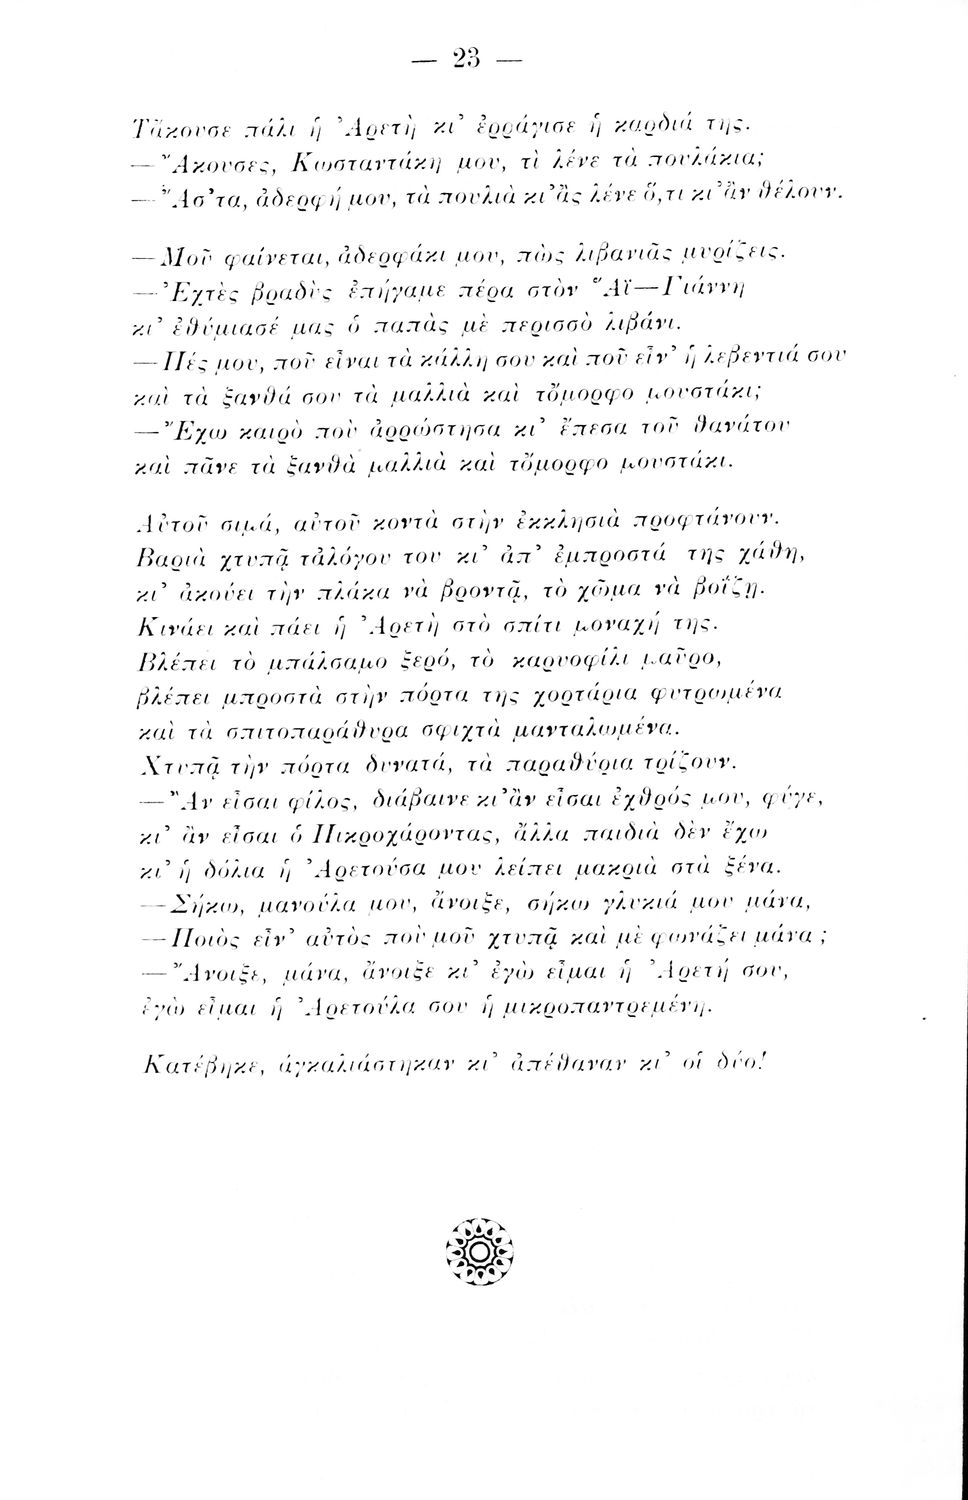 — 23 —
Τἄκουσε πάλι ἡ Ἀρετὴ κι’ ἐρράγισε ἡ καρδιά της.
— Ἄκουσες, Κωσταντάκη μου, τὶ λένε τὰ πουλάκια;
— Ἄσ’τα, ἀδερφή μου, τὰ πουλιὰ κι’ ἂς λένε ὅ,τι κι’ ἂν θέλουν.
— Μοῦ φαίνεται, ἀδερφάκι μου, πὼς λιβανιᾶς μυρίζεις.
— Ἐχτὲς βραδὺς ἐπήγαμε πέρα στὸν Ἅϊ—Γιάννη
κι’ ἐθύμιασέ μας ὁ παπὰς μὲ περισσὸ λιβάνι.
— Πές μου, ποῦ εἶναι τὰ κάλλη σου καὶ ποῦ εἶν’ ἡ λεβεντιά σου
καὶ τὰ ξανθά σου τὰ μαλλιὰ καὶ τὄμορφο μουστάκι;
— Ἔχω καιρὸ ποὺ ἀρρώστησα κι’ ἔπεσα τοῦ θανάτου
καὶ πᾶνε τὰ ξανθὰ μαλλιὰ καὶ τὄμορφο μουστάκι.
Αὐτοῦ σιμά, αὐτοῦ κοντὰ στὴν ἐκκλησιὰ προφτάνουν.
Βαριὰ χτυπᾷ τἀλόγου του κι’ ἀπ’ ἐμπροστά της χάθη,
κι’ ἀκούει τὴν πλάκα νὰ βροντᾷ, τὸ χῶμα νὰ βοΐζῃ.
Κινάει καὶ πάει ἡ Ἀρετὴ στὸ σπίτι μοναχή της.
Βλέπει τὸ μπάλσαμο ξερό, τὸ καρυοφίλι μαῦρο,
βλέπει μπροστὰ στὴν πόρτα της χορτάρια φυτρωμένα
καὶ τὰ σπιτοπαράθυρα σφιχτὰ μανταλωμένα.
Χτυπᾷ τὴν πόρτα δυνατά, τὰ παραθύρια τρίζουν.
— Ἂν εἶσαι φίλος, διάβαινε κι’ ἂν εἶσαι ἐχθρός μου, φύγε,
κι’ ἂν εἶσαι ὁ Πικροχάροντας, ἄλλα παιδιὰ δὲν ἔχω
κι’ ἡ δόλια ἡ Ἀρετούσα μου λείπει μακριὰ στὰ ξένα.
— Σήκω, μανούλα μου, ἄνοιξε, σήκω γλυκιά μου μάνα,
— Ποιὸς εἶν’ αὐτὸς ποὺ μοῦ χτυπᾷ καὶ μὲ φωνάζει μάνα ;
— Ἄνοιξε, μάνα, ἄνοιξε κι’ ἐγὼ εἶμαι ἡ Ἀρετή σου,
ἐγὼ εἶμαι ἡ Ἀρετούλα σου ἡ μικροπαντρεμένη.
Κατέβηκε, ἀγκαλιάστηκαν κι’ ἀπέθαναν κι’ οἱ δύο!